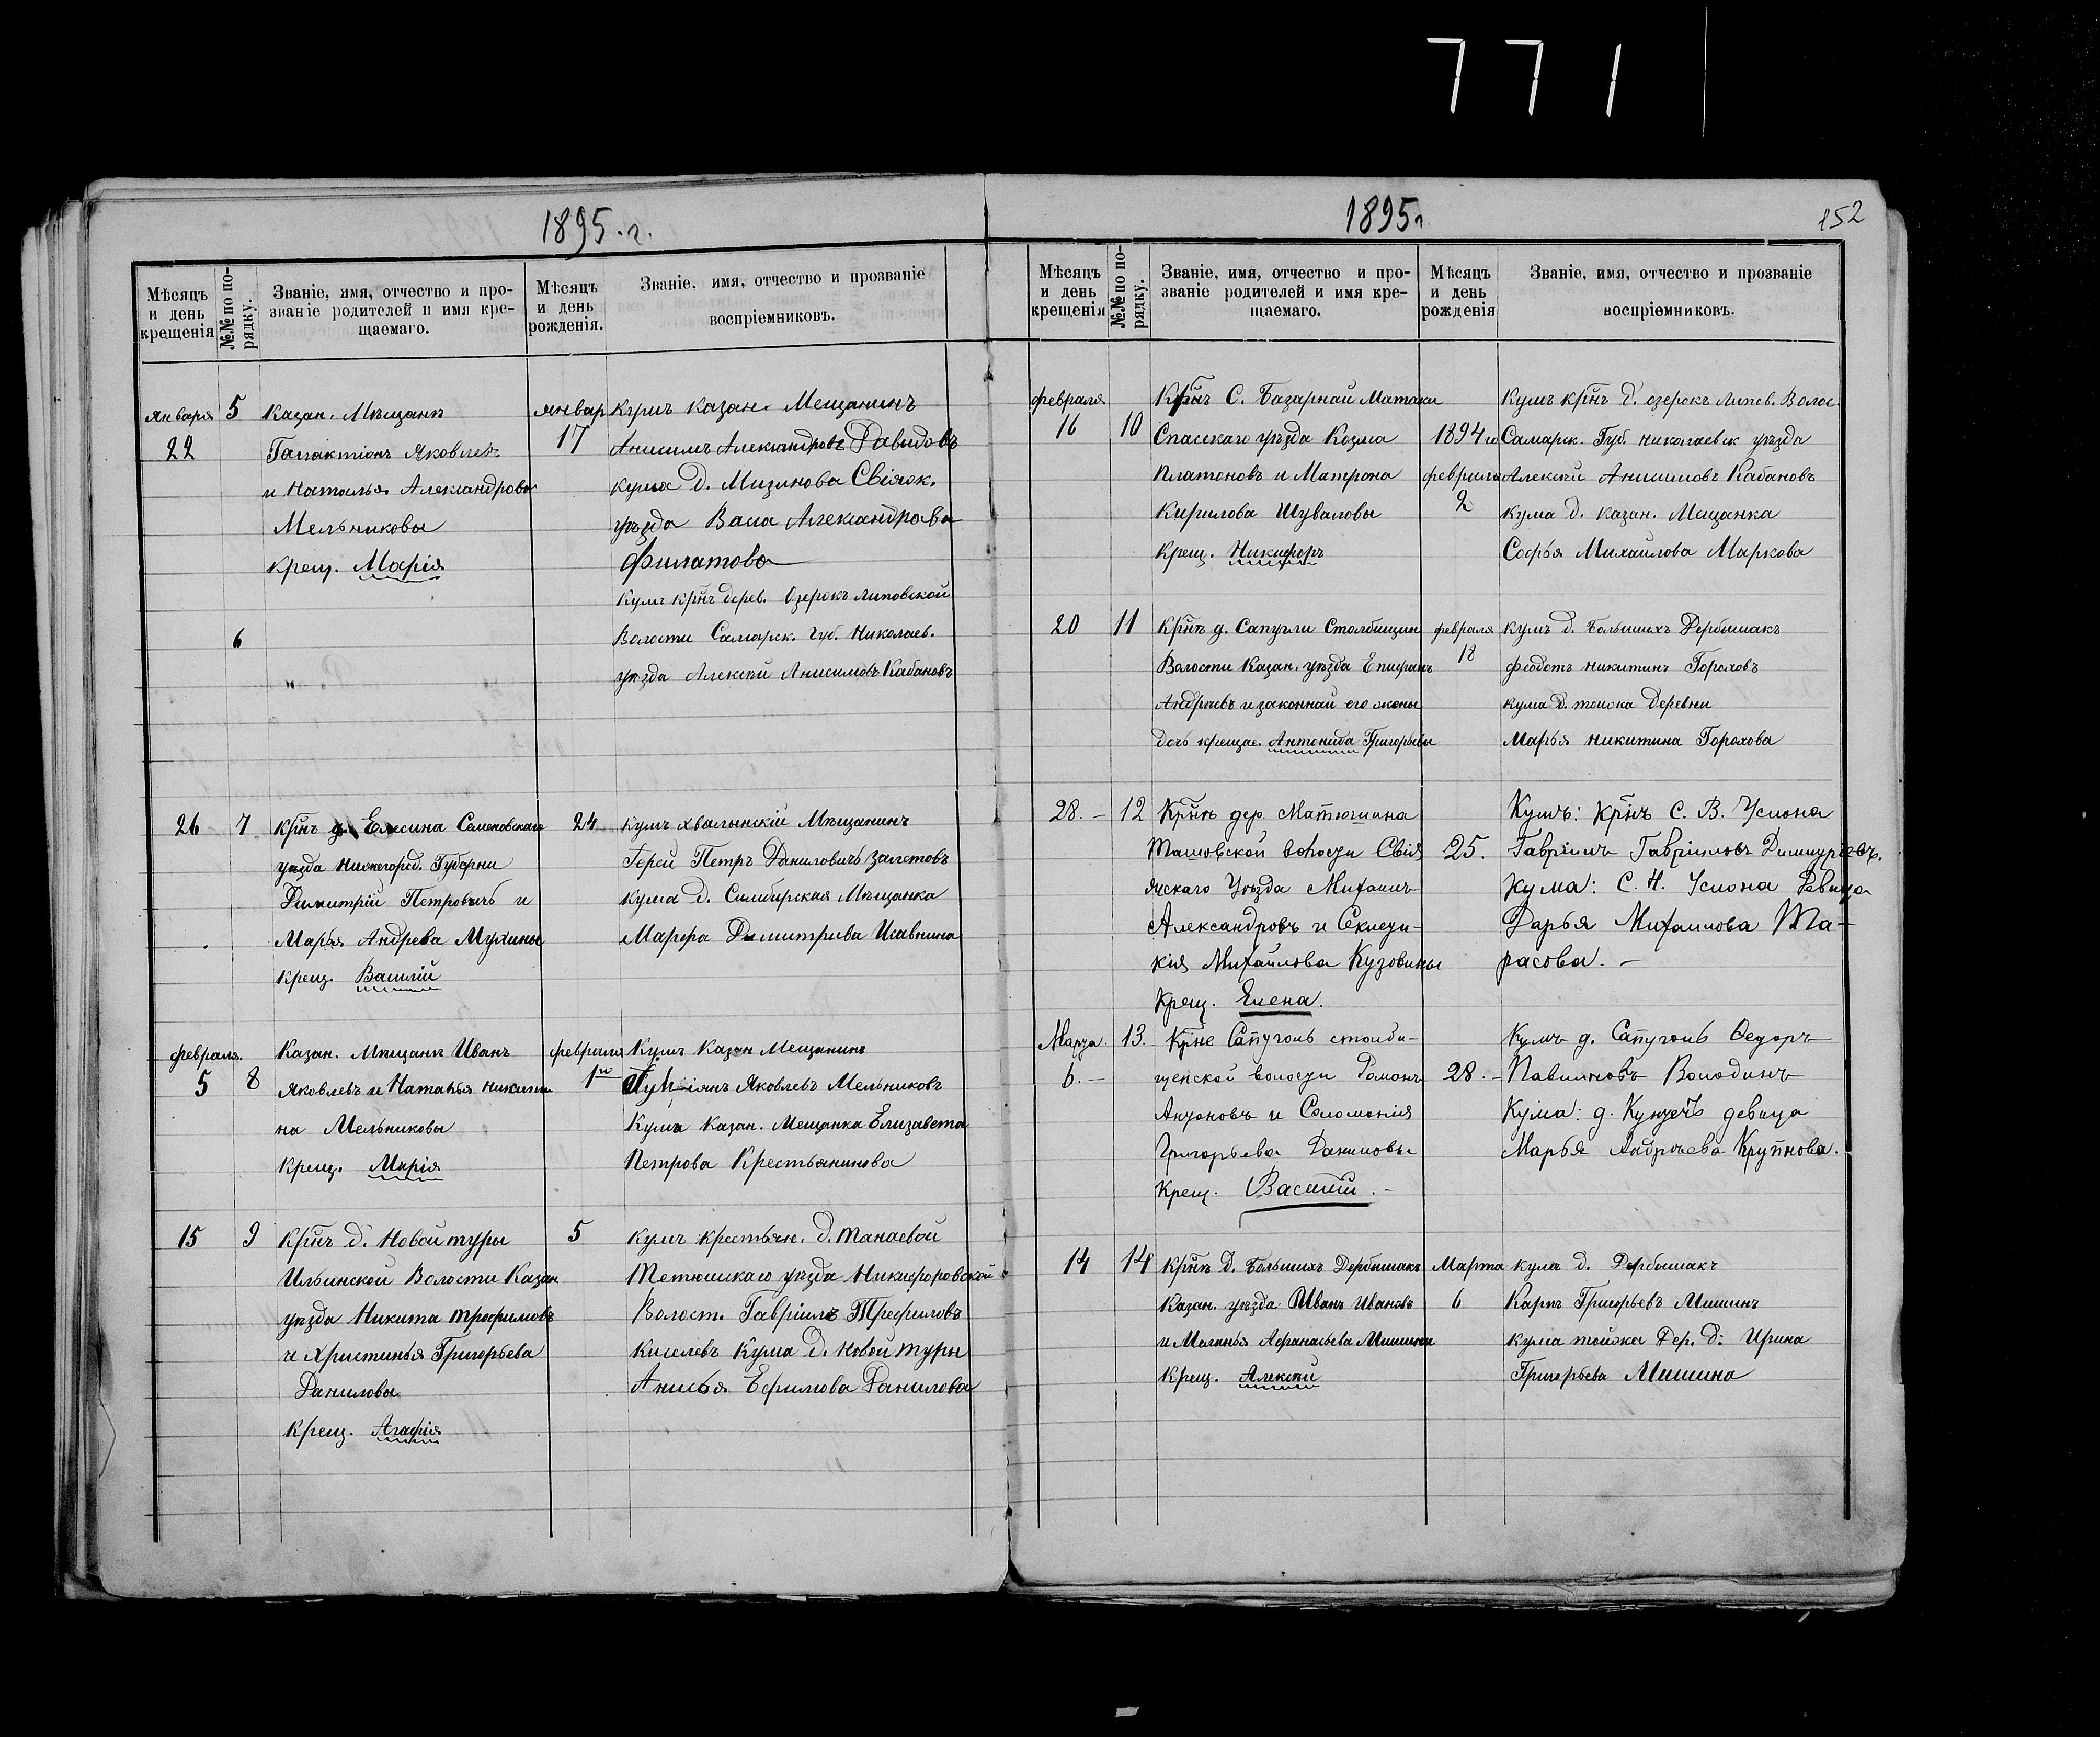 771
1895.г.
Мѣсяцъ и день крещенія
№№ по порядку.
Званіе, имя, отчество и прозваніе родителей и имя крещаемаго.
Мѣсяцъ и день рожденія.
Званіе, имя, отчество и прозваніе воспріемниковъ.
января 22
5
Казан. Мѣщанѣ
Галактіонъ Яковлев
и Наталья Александрова
Мельниковы
крещ. Марія
январ 17
Кумъ казан. Мещанинъ
Анисимъ Александровъ Давыдовъ
кума д. Мизинова Свіяж.
уѣзда Васа Александрова
Филатова
6
Кумъ кр̃нъ дерев. Озерокъ Липовской
Волости Самарск. Губ. Николаев.
уѣзда Алексѣй Анисимовъ Кабановъ
26
7
Кр̃нъ д. Елесина Семеновскаго
уѣзда Нижегород. Губерни
Димитрій Петровичъ и
Марья Андрева Мухины
крещ. Василій
24
Кумъ хвалынскій Мѣщанинъ
Герей Петръ Даниловичъ Залетовъ
кума д. Симбирская Мѣщанка
Марфа Димитриева Исавнина
февраля. 5
8
Казан. Мѣщанѣ Иванъ
Яковлевъ и Наталья Никити
на Мельниковы
Крещ. Марія
февраля 1го
Кумъ Казан Мещанинъ
Лукіянъ Яковлевъ Мельниковъ
Кума Казан. Мещанка Елизавета
Петрова Крестьянинова
15
9
Кр̃нъ д. Новой туры
Ильинской Волости Казан
уѣзда Никита Трофимовъ
и Христинья Григорьева
Даниловы
Крещ. Агафія
5
кумъ крестьян. д. Танаевой
Тетюшскаго уѣзда Никифоровской
Волост. Гавріилъ Трефиловъ
Киселевъ Кума д. Новой туры
Анисья Ефимова Данилова
1895г
152
Мѣсяцъ и день крещенія
№№ по порядку.
Званіе, имя, отчество и прозваніе родителей и имя крещаемаго.
Мѣсяцъ и день рожденія
Званіе, имя, отчество и прозваніе воспріемниковъ.
февраля 16
10
Кр̃нъ С. Базарнай Матаки
Спасскаго уѣзда Козма
Платоновъ и Матрона
Кирилова Шуваловы
Крещ. Никифоръ
1894го февраля 2
Кумъ кр̃нъ д. озерокъ Липов. Волос.
Самарск. Губ. Николаевск уѣзда
Алексѣй Анисимовъ Кабановъ
кума д. казан. Мещанка
Софья Михаилова Маркова
20
11
Кр̃нъ д. Сапугли Столбищин
Волости Казан. уѣзда Епифанъ
Андреевъ и законнай его жены
дочь крещае. Антонида Григорьевы
февраля 18
Кумъ д. Большихъ Дербышакъ
Федотъ Никитинъ Гороховъ
кума д. тойжа Деревни
Марья Никитина Горохова
28.—
12
Кр̃нъ дер. Матюшина
Ташовской волости Свія
жскаго Уѣзда Михаилъ
Александровъ и Секлети-
кія Михайлова Кузовины
Крещ. Елена.
25.
Кумъ: кр̃нъ С. В. Услона
Гавріилъ Гавріиловъ Димитріевъ.
Кума: С. Н. Услона Девица
Дарья Михаилова Та-
расова.—
Марта 6.—
13.
Кр̃не Сапуголь столби-
щенской волости Романъ
Антоновъ и Соломонія
Григорьева Даниловы
Крещ. Василій.—
28.—
Кумъ д. Сапуголь Ѳедоръ
Павиловъ Володинъ
Кума: д. Кунтечь девица
Марья Андреева Крупнова.
14
14
Кр̃нъ д. Большихъ Дербышакъ
Казан. уѣзда Иванъ Ивановъ
и Маланья Афанасьева Мишины
Крещ. Алексѣй
Марта 6
кумъ д. Дербышакъ
Карпъ Григорьевъ Мишинъ
кума тойжа Дер. д: Ирина
Григорьева Мишина